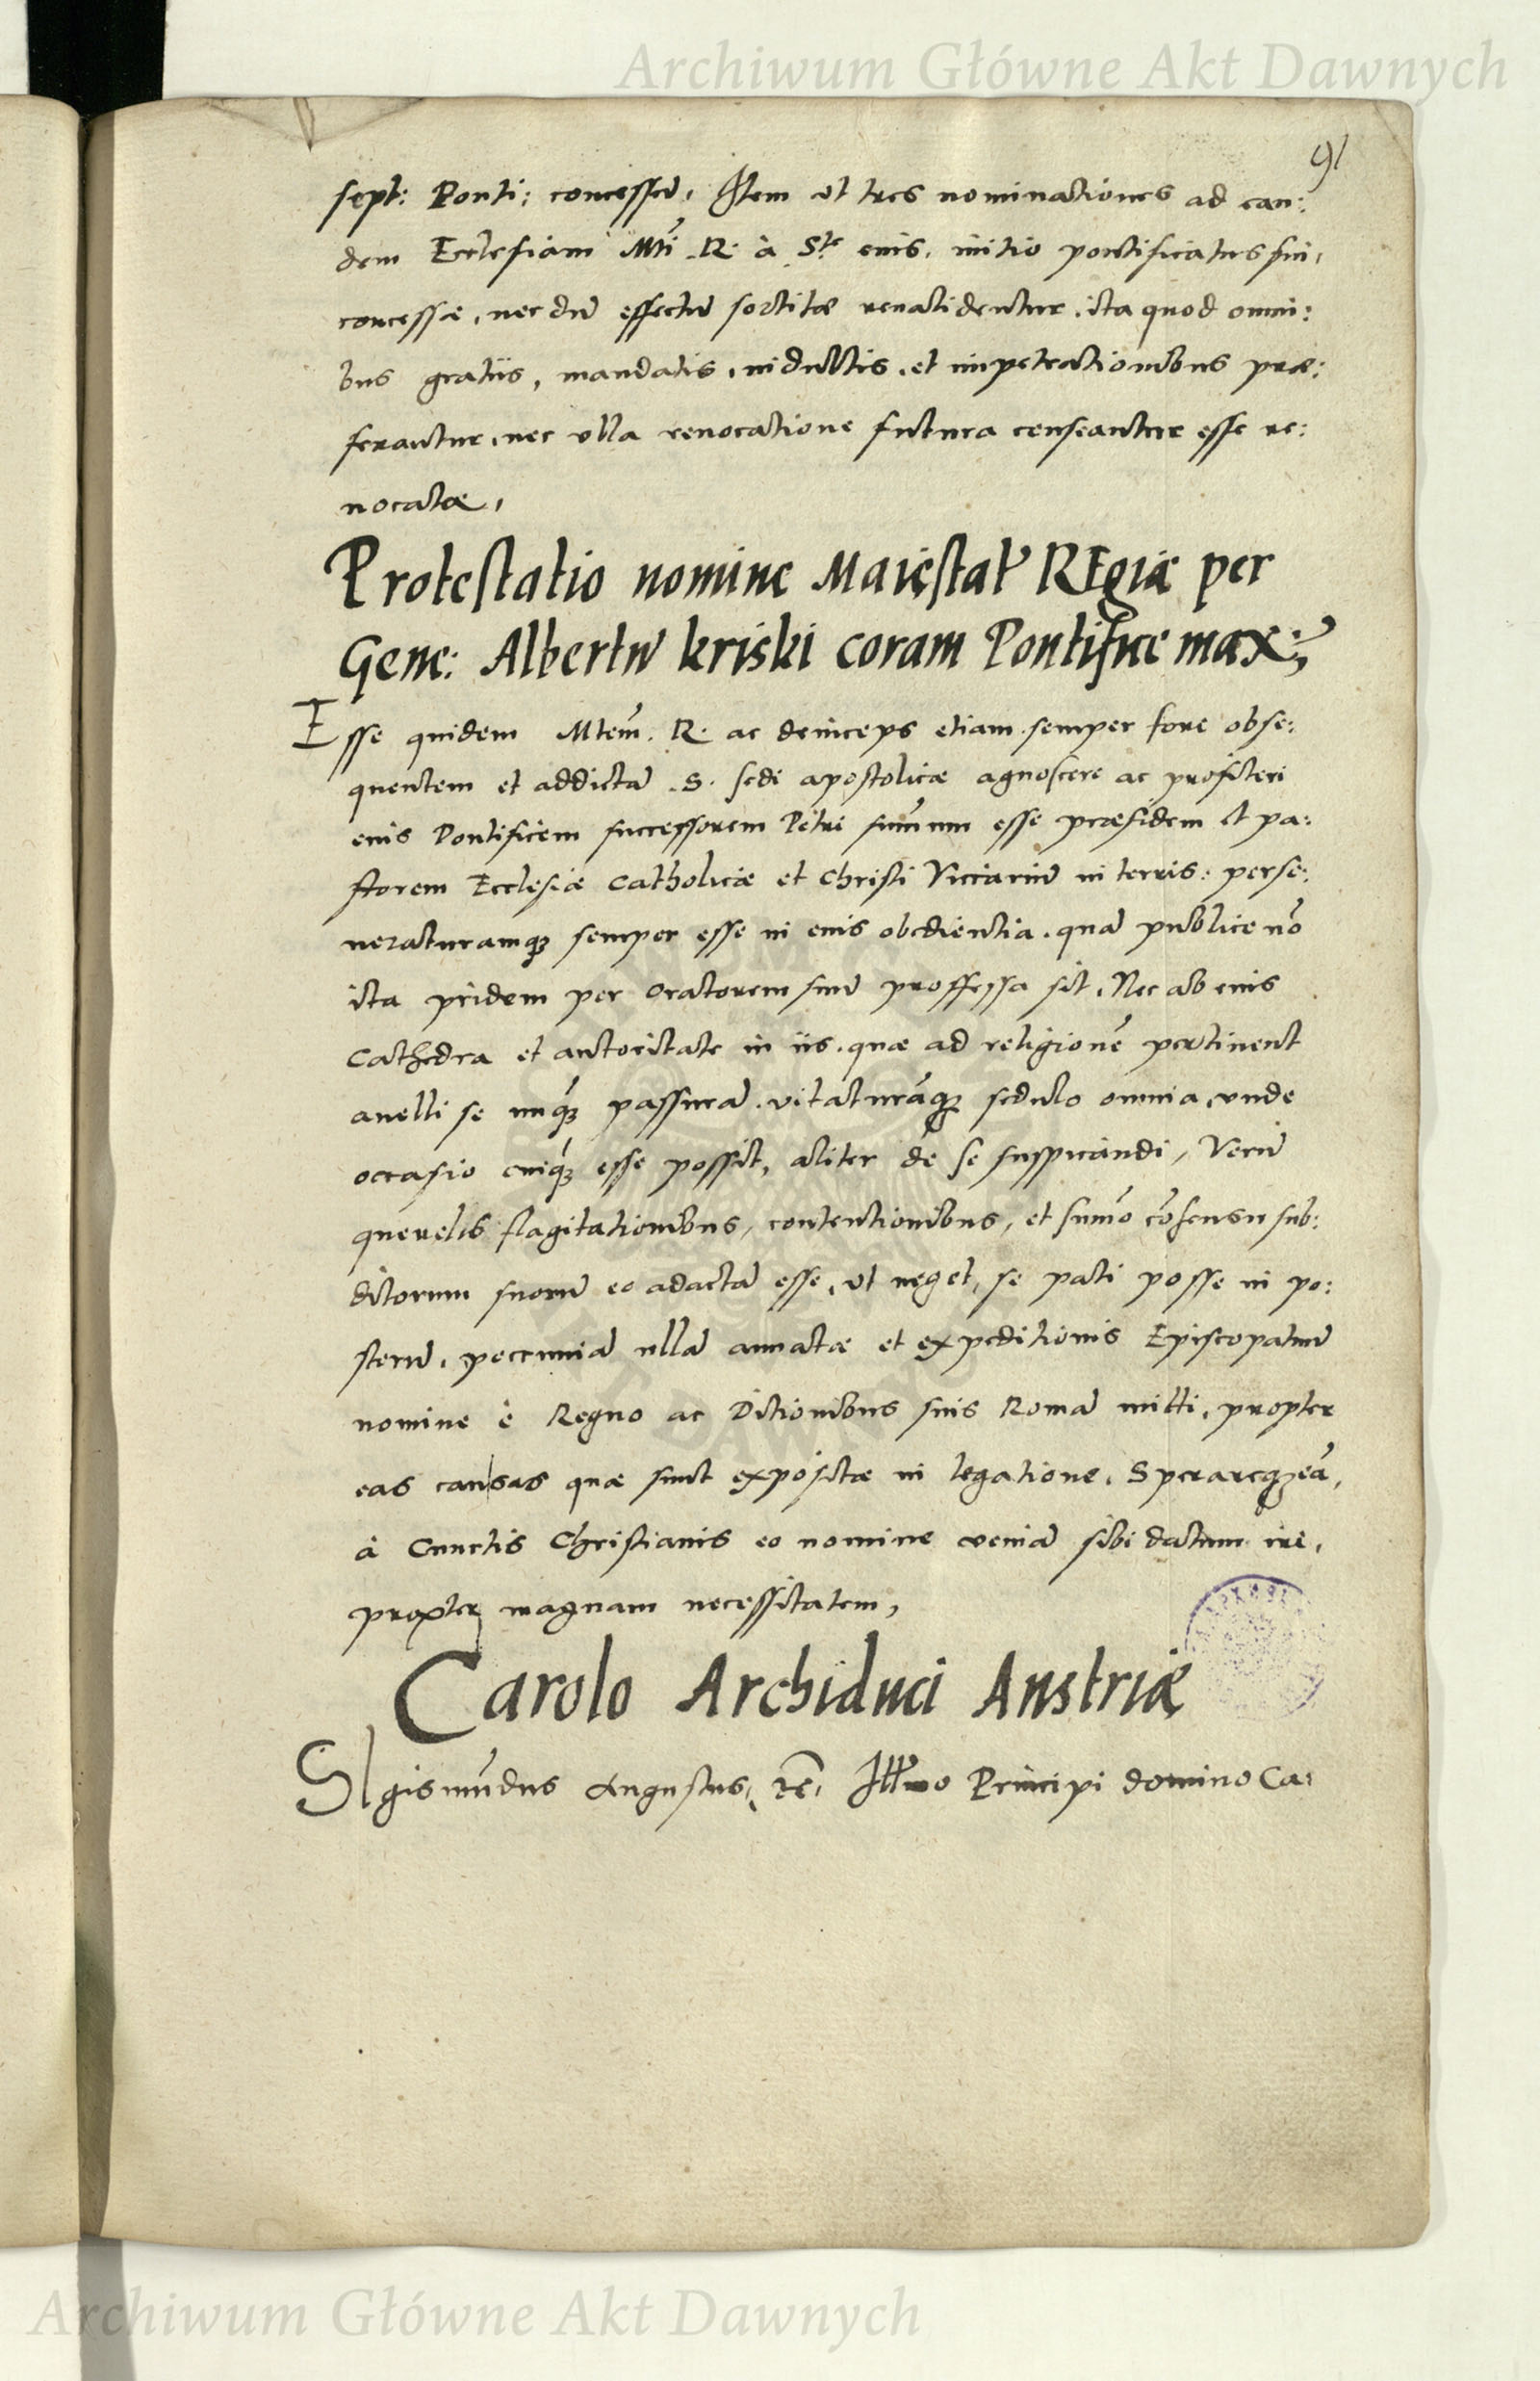 Archiwum Główne Akt Dawnych
91
sept: Ponti: concessū, Item ut tres nominationes ad ean:
dem Ecclesiam Mti R. à Ste eius, initio pontificatus sui,
concessæ, nec dū effectū sortitæ revalidentur, ita quod omni:
bus gratiis, mandatis, indultis, et impetrationibus præ:
ferantur, nec ulla revocatione futura censeantur esse re:
vocatæ,
Protestatio nomine Maiestat REgiæ per
Gene: Albertū kriski coram Pontifice max:
Esse quidem Mtem̄. R. ac deinceps etiam semper fore obse:
quentem et addictā S. sedi apostolicæ agnoscere ac profiteri
eius Pontificem successorem Petri sum̄um esse præsidem et pa:
storem Ecclesiæ Catholicæ et Christi Vicariū in terris: perse:
veraturamqꝫ semper esse in eius obedientia, quā publice nō
ita pridem per oratorem suū proffessa sit, Nec ab eius
Cathedra et autoritate in iis, quæ ad religionē pertinent
avelli se nūqꝫ passurā, vitaturāqꝫ sedulo omnia, unde
occasio cuiqꝫ esse possit, aliter de se suspicandi, Verū
querelis flagitationibus, contentionibus, et sum̄o cōsensu sub:
ditorum suorū eo adactā esse, ut neget, se pati posse in po:
sterū, pecuniā ullā annatæ et expeditionis Episcopatuū
nomine è Regno ac Ditionibus suis Romā mitti, propter
eas causas quæ sunt expositæ in legatione, Sperareqꝫ eā,
à Cunctis Christianis eo nomine veniā sibi datum iri,
propter magnam necessitatem,
Carolo Archiduci Austriæ
SIgismūdus Augustus, rē, Illmo Principi domino Ca:
Archiwum Główne Akt Dawnych